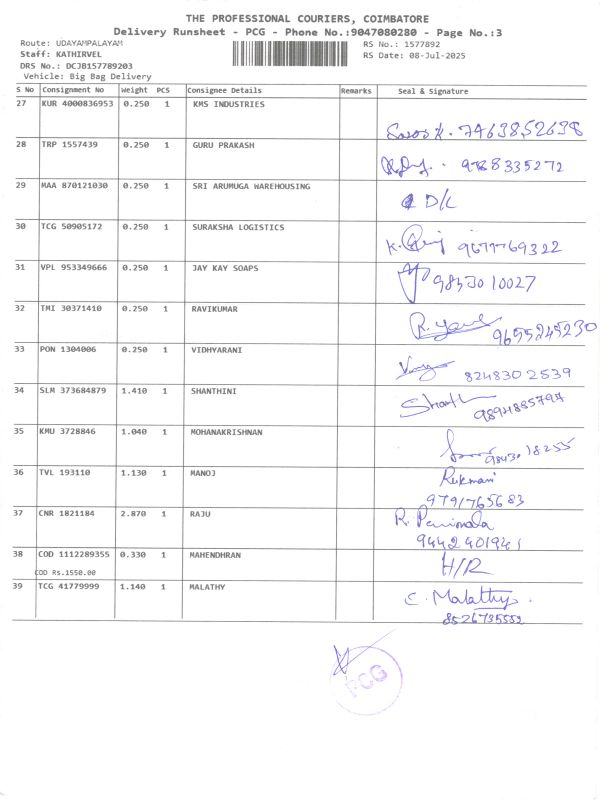 THE PROFESSIONAL COURIERS, COIMBATORE
Delivery Runsheet - PCG - Phone No.:9047080280 - Page No.:3
Route: UDAYAMPALAYAM
RS No.: 1577892
Staff: KATHIRVEL
RS Date: 08-Jul-2025
DRS No.: DCJB157789203
Vehicle: Big Bag Delivery
S No Consignment No Weight PCS Consignee Details Remarks Seal & Signature
27 KUR 4000836953 0.250 1 KMS INDUSTRIES
7463852638
28 TRP 1557439 0.250 1 GURU PRAKASH
9788335272
29 MAA 870121030 0.250 1 SRI ARUMUGA WAREHOUSING
D/L
30 TCG 50905172 0.250 1 SURAKSHA LOGISTICS
9677769322
31 VPL 953349666 0.250 1 JAY KAY SOAPS
9843010027
32 TMI 30371410 0.250 1 RAVIKUMAR
9655245230
33 PON 1304006 0.250 1 VIDHYARANI
8248302539
34 SLM 373684879 1.410 1 SHANTHINI
9894885797
35 KMU 3728846 1.040 1 MOHANAKRISHNAN
9843018255
36 TVL 193110 1.130 1 MANOJ
Rukmani
9791765683
37 CNR 1821184 2.870 1 RAJU
9442401941
38 COD 1112289355 0.330 1 MAHENDHRAN
H/R
COD Rs.1550.00
39 TCG 41779999 1.140 1 MALATHY
C. Malathy.
8526735552
PCG